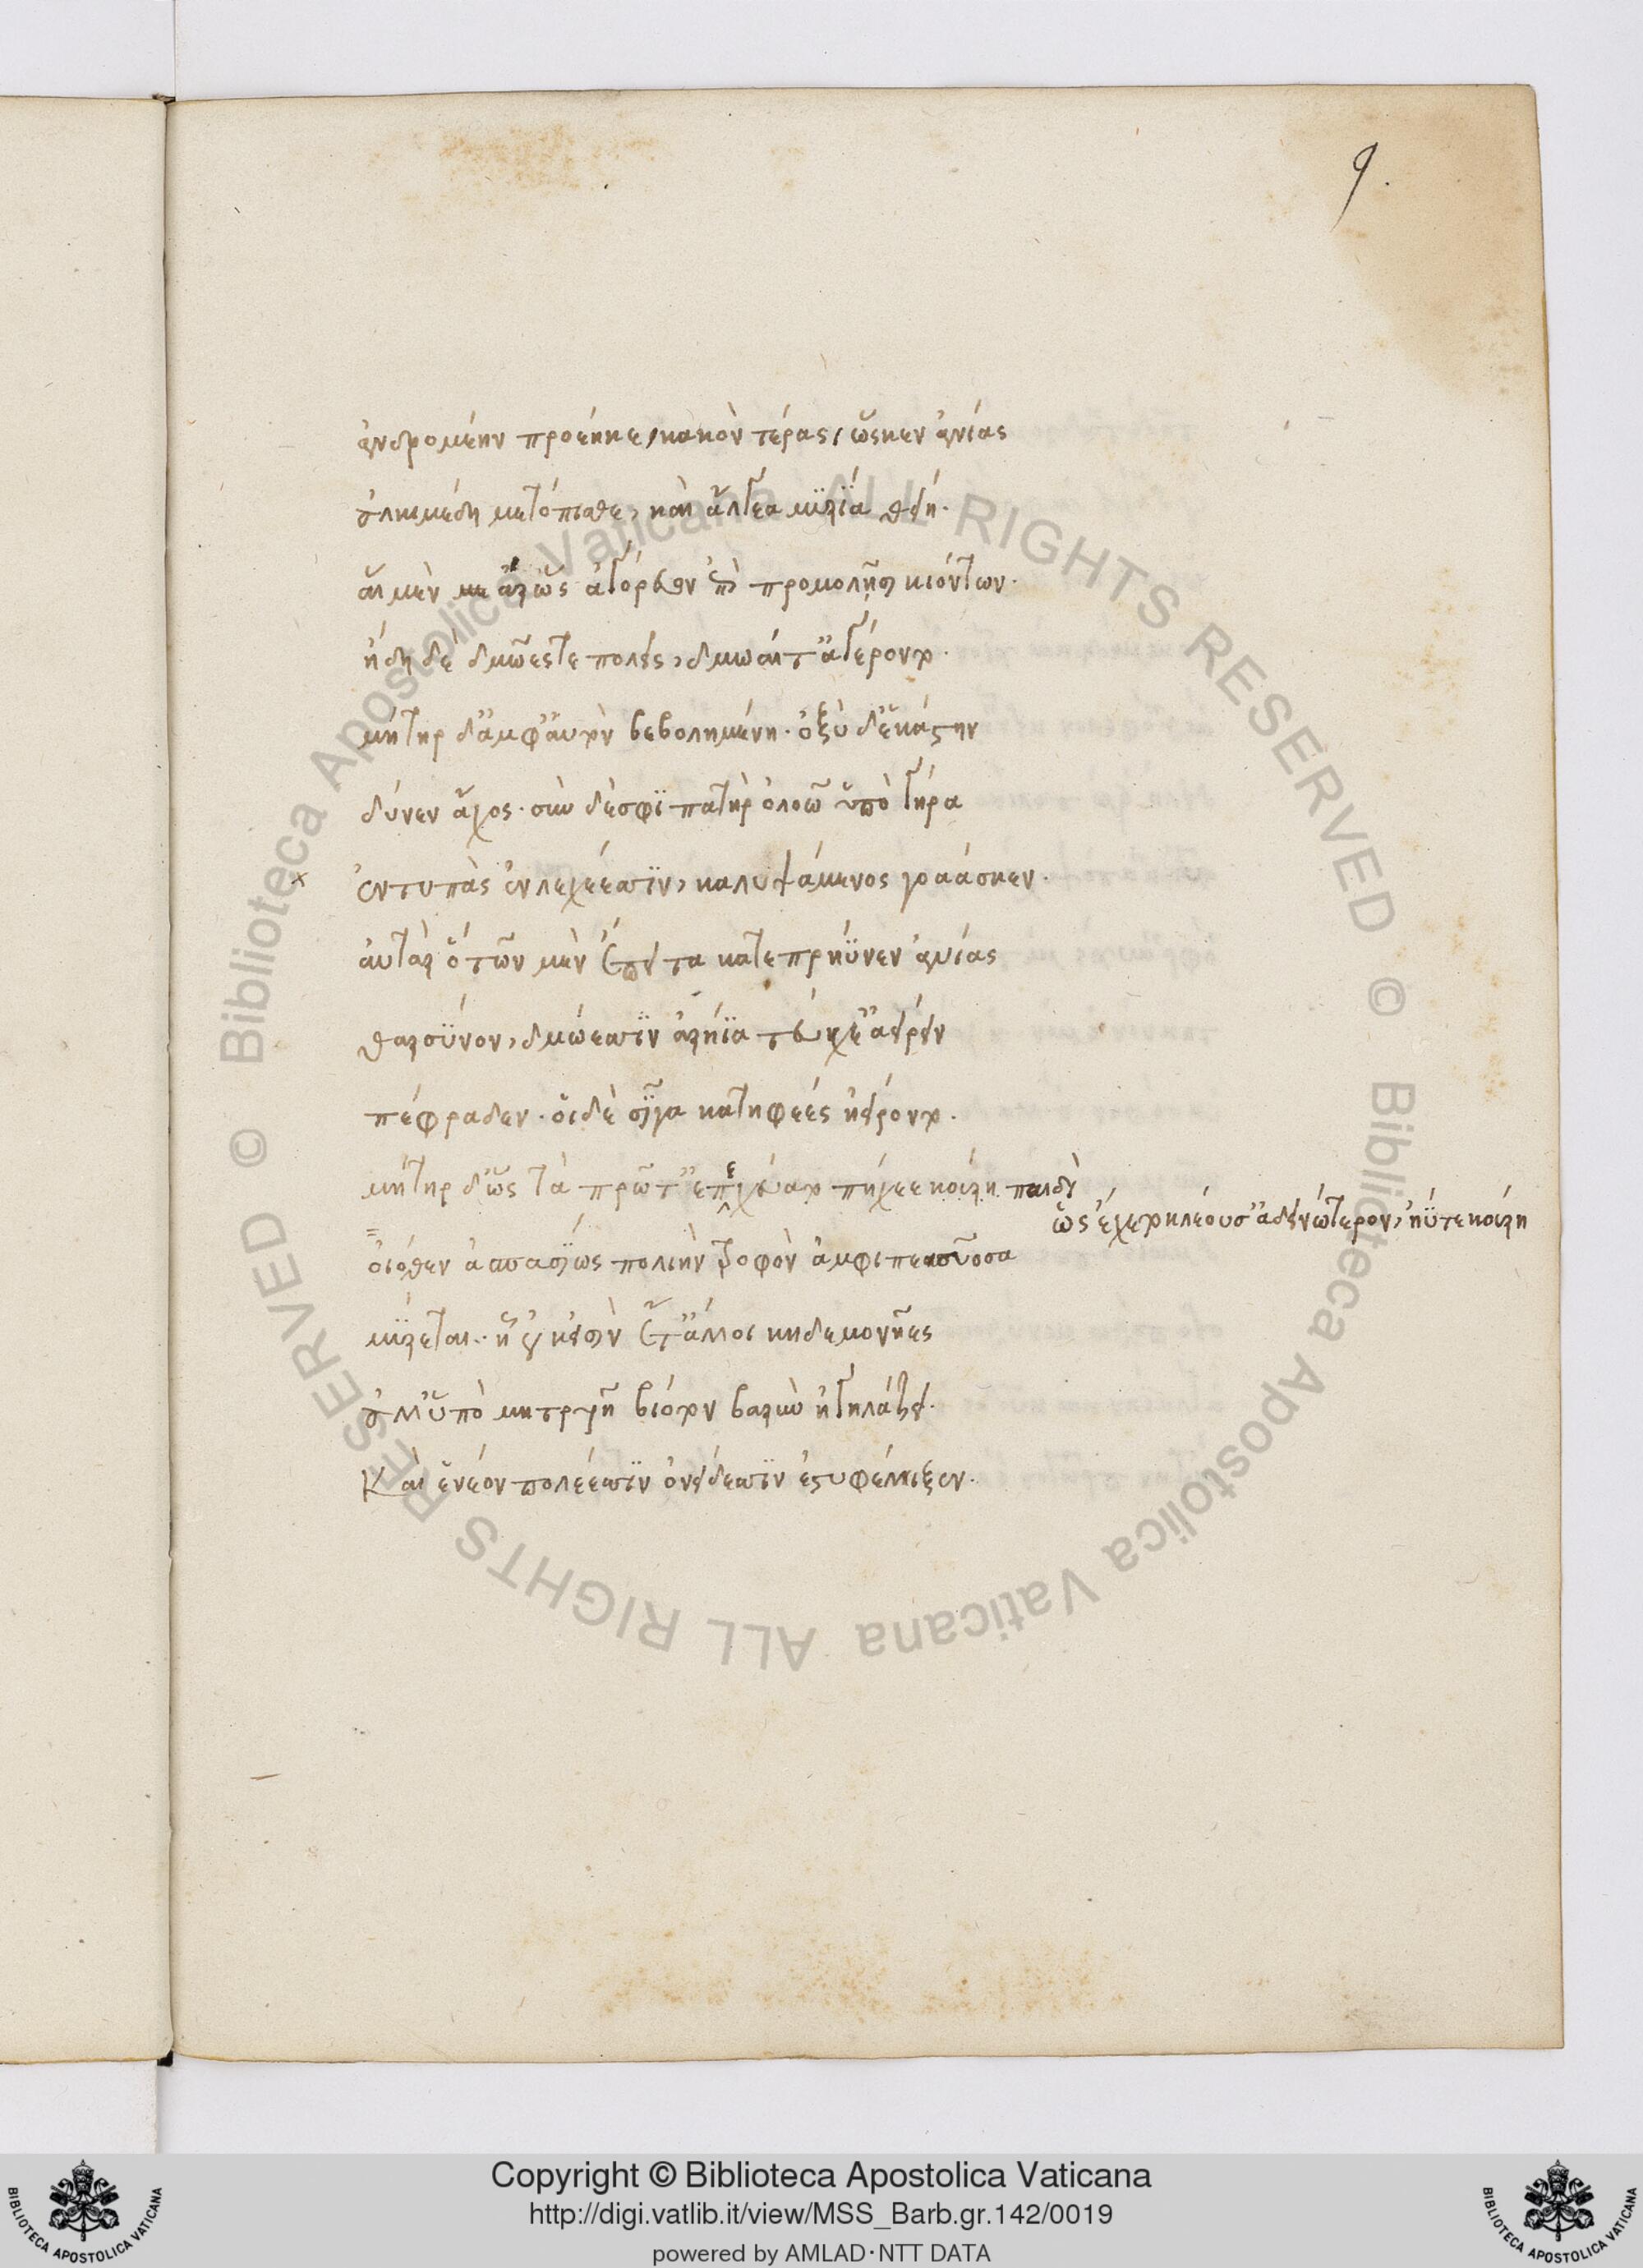 9.
ἀνερομένην προέηκε, κακὸν τέρας, ὥς κεν ἀνίας
ἑλκεμέναι μετόπισθε, καὶ ἄλγεα μυρία θείη.
αἱ μὲν ἄρ ὣς ἀγόρευον ἐπὶ προμολῇσι κιόντων.
ἤδη δὲ δμῶές τε πολεῖς, δμωαί τ' ἀγέροντο.
μήτηρ δ' ἀμφ' αὐτὸν βεβολημένη. ὀξὺ δ' ἑκάστην
δύνεν ἄχος. σὺν δέ σφι πατὴρ ὀλοῷ ὑπὸ γήραι
ἐντυπὰς ἐν λεχέεσσιν, καλυψάμενος γοάασκεν.
αὐτὰρ ὁ τῶν μὲν ἔπειτα κατεπρήϋνεν ἀνίας
θαρσύνων, δμώεσσιν ἀρήϊα τεύχε' ἀείρειν
πέφραδεν. οἱ δὲ σῖγα κατηφέες ἠείροντο.
μήτηρ δ' ὡς τὰ πρῶτ' ἐπεχεύατο πήχεε κούρη παιδὶ
ὣς ἔχετο κλαίουσ' ἀδινώτερον, ἠΰτε κούρη
οἰόθεν ἀσπασίως πολιὴν τροφὸν ἀμφιπεσοῦσα
μύρεται. ᾗ οὐκ εἰσὶν ἔτ' ἄλλοι κηδεμονῆες
ἀλλ' ὑπὸ μητρυιῇ βίοτον βαρὺν ἡγηλάζει.
Καί ἑ νέον πολέεσσιν ὀνείδεσιν ἐστυφέλιξεν.
Copyright © Biblioteca Apostolica Vaticana
http://digi.vatlib.it/view/MSS_Barb.gr.142/0019
powered by AMLAD·NTT DATA
BIBLIOTECA APOSTOLICA VATICANA
BIBLIOTECA APOSTOLICA VATICANA
© Biblioteca Apostolica Vaticana ALL RIGHTS RESERVED
© Biblioteca Apostolica Vaticana ALL RIGHTS RESERVED